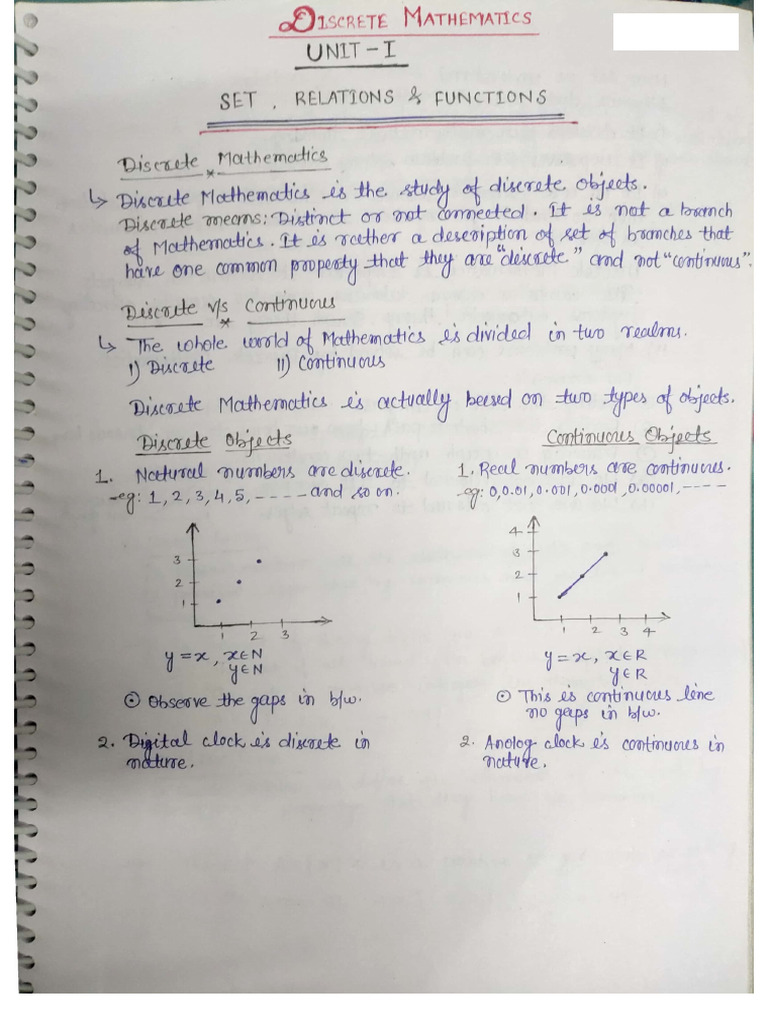 DISCRETE MATHEMATICS
UNIT-I
SET, RELATIONS & FUNCTIONS
Discrete Mathematics
↳ Discrete Mathematics is the study of discrete objects.
Discrete means: Distinct or not connected. It is not a branch
of Mathematics. It is rather a description of set of branches that
have one common property that they are "discrete" and not "continuous".
Discrete v/s Continuous
↳ The whole world of Mathematics is divided in two realms.
I) Discrete II) Continuous
Discrete Mathematics is actually based on two types of objects.
Discrete Objects
1. Natural numbers are discrete.
eg: 1, 2, 3, 4, 5, ---- and so on.
3
2
1
1 2 3
y = x, x∈N
y∈N
⊙ Observe the gaps in b/w.
2. Digital clock is discrete in
nature.
Continuous Objects
1. Real numbers are continuous.
eg: 0, 0.01, 0.001, 0.0001, 0.00001, ----
4
3
2
1
1 2 3 4
y = x, x∈R
y∈R
⊙ This is continuous line
no gaps in b/w.
2. Anolog clock is continuous in
nature.